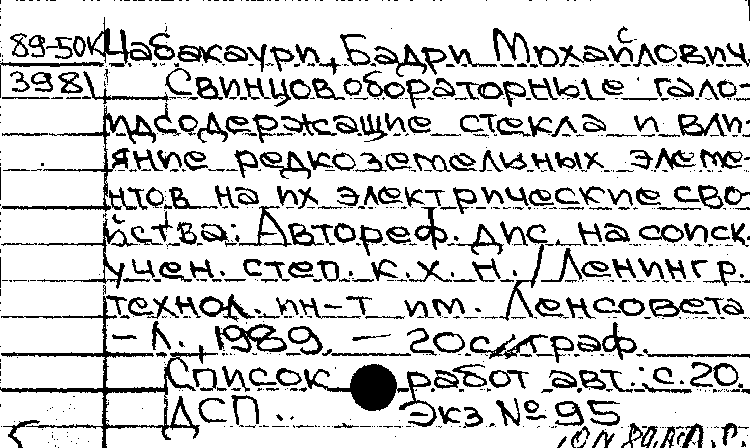 89-50К Цабакаури, Бадри Михайлович
3981 Свинцовоборатορные гало-
идсодержащие стекла и вли-
яние редкоземельных элеме-
нтов на их электрические сво-
йства: Автореф. дис. на соиск.
учен. степ. к. х. н. / Ленингр.
технол. ин-т им. Ленсовета
– Л., 1989. – 20с., граф.
Список работ авт.: с.20.
ДСП. Экз. № 95